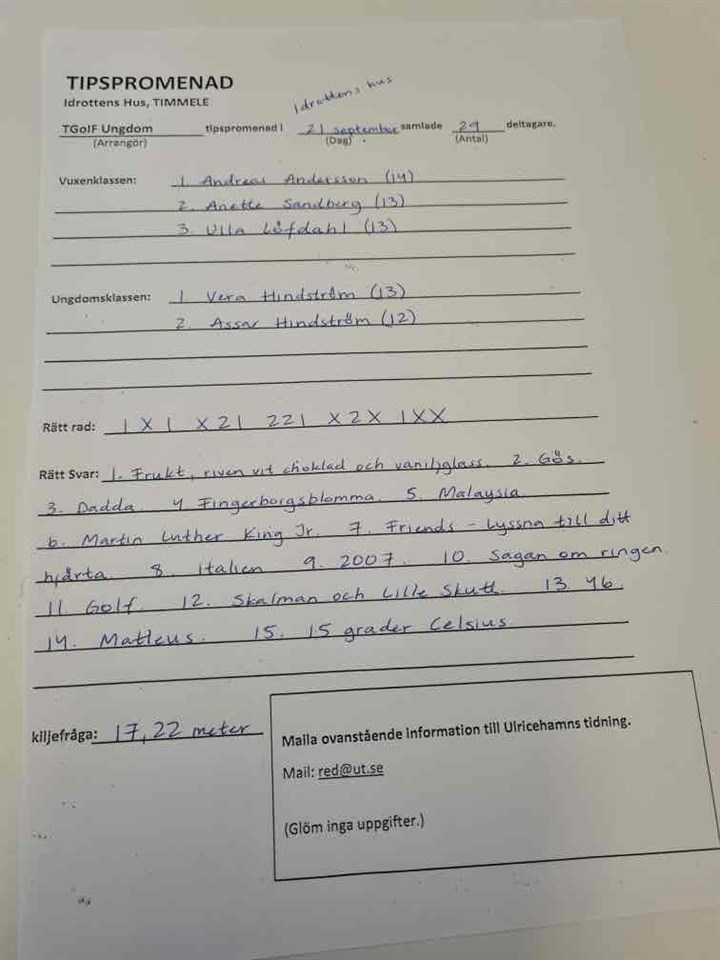 TIPSPROMENAD
Idrottens Hus, TIMMELE
Idrottens hus
TGoIF Ungdom tipspromenad i 21 september samlade 29 deltagare.
(Arrangör) (Dag) (Antal)
Vuxenklassen: 1. Andreas Andersson (14)
2. Anette Sandberg (13)
3. Ulla Löfdahl (13)
Ungdomsklassen: 1 Vera Hindström (13)
2. Assar Hindström (12)
Rätt rad: 1X1 X21 221 X2X 1XX
Rätt Svar: 1. Frukt, riven vit choklad och vaniljglass. 2. Gös.
3. Dadda. 4. Fingerborgsblomma. 5. Malaysia.
6. Martin Luther King Jr. 7. Friends - Lyssna till ditt
hjärta. 8. Italien 9. 2007. 10. Sagan om ringen.
11. Golf. 12. Skalman och Lille Skutt. 13. 46.
14. Matteus. 15. 15 grader Celsius
kiljefråga: 17,22 meter
Maila ovanstående information till Ulricehamns tidning.
Mail: red@ut.se
(Glöm inga uppgifter.)